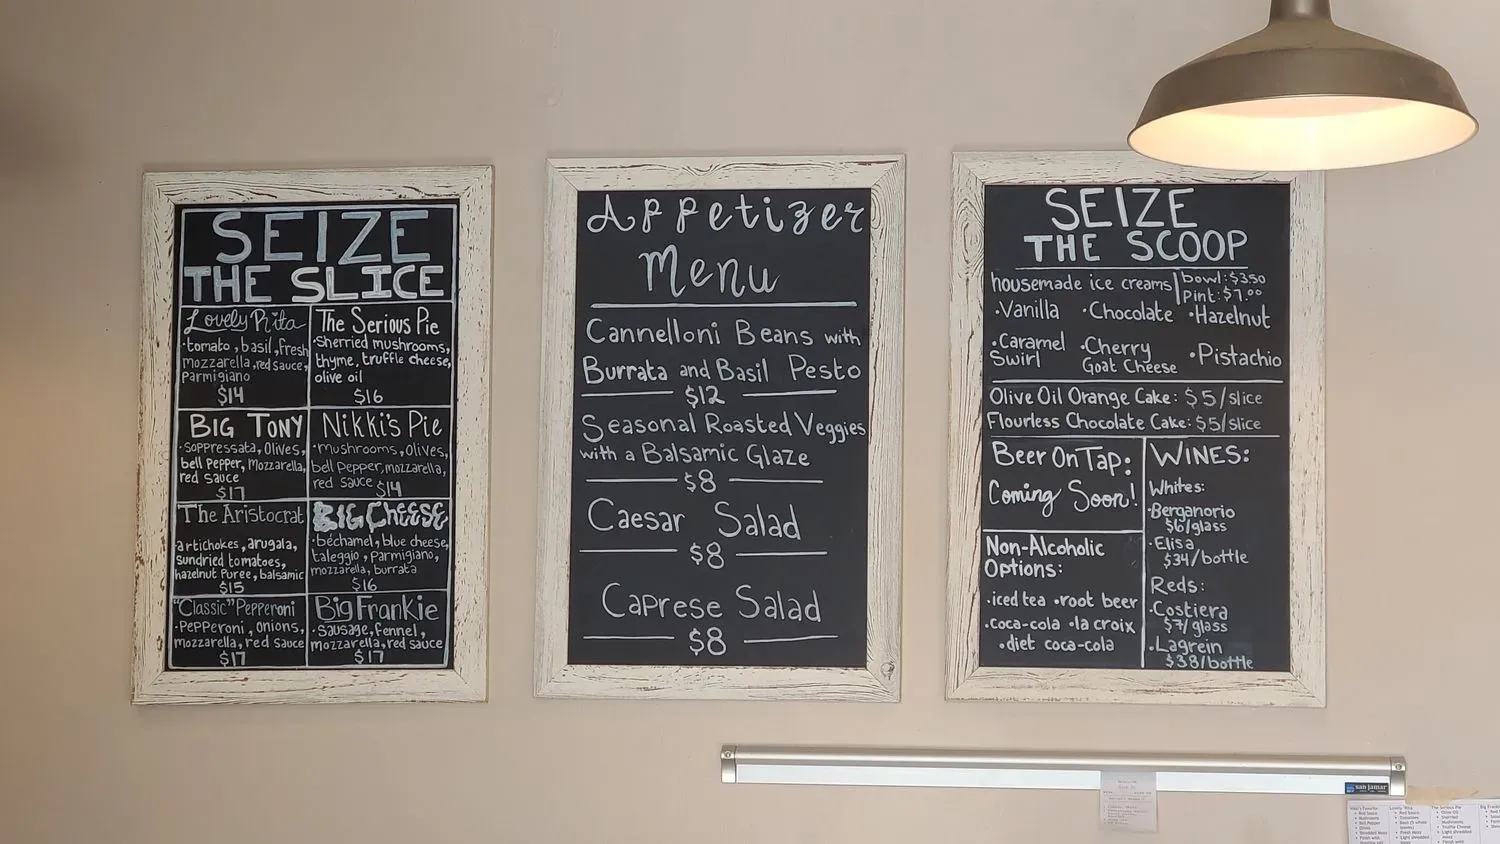 SEIZE
THE SLICE
Lovely Rita
·tomato, basil, fresh
mozzarella, red sauce,
Parmigiano
$14
The Serious Pie
·Sherried mushrooms,
thyme, truffle cheese,
olive oil
$16
BIG TONY
·Soppressata, Olives,
bell Pepper, Mozzarella,
red sauce
$17
Nikki's Pie
·mushrooms, olives,
bell Pepper, mozzarella,
red sauce $14
The Aristocrat
artichokes, arugala,
sundried tomatoes,
hazelnut Puree, balsamic
$15
BIG CHEESE
·béchamel, blue cheese,
taleggio, Parmigiano,
mozzarella, burrata
$16
"Classic" Pepperoni
·Pepperoni, onions,
mozzarella, red sauce
$17
Big Frankie
·Sausage, fennel,
mozzarella, red sauce
$17
Appetizer
Menu
Cannelloni Beans with
Burrata and Basil Pesto
$12
Seasonal Roasted Veggies
with a Balsamic Glaze
$8
Caesar Salad
$8
Caprese Salad
$8
SEIZE
THE SCOOP
housemade ice creams
bowl: $3.50
Pint: $7.00
·Vanilla ·Chocolate ·Hazelnut
·Caramel Swirl ·Cherry Goat Cheese ·Pistachio
Olive Oil Orange Cake: $5/slice
Flourless Chocolate Cake: $5/slice
Beer On Tap:
Coming Soon!
Non-Alcoholic
Options:
·iced tea ·root beer
·coca-cola ·la croix
·diet coca-cola
WINES:
Whites:
·Berganorio
$6/glass
·Elisa
$34/bottle
Reds:
·Costiera
$7/glass
·Lagrein
$38/bottle
san jamar